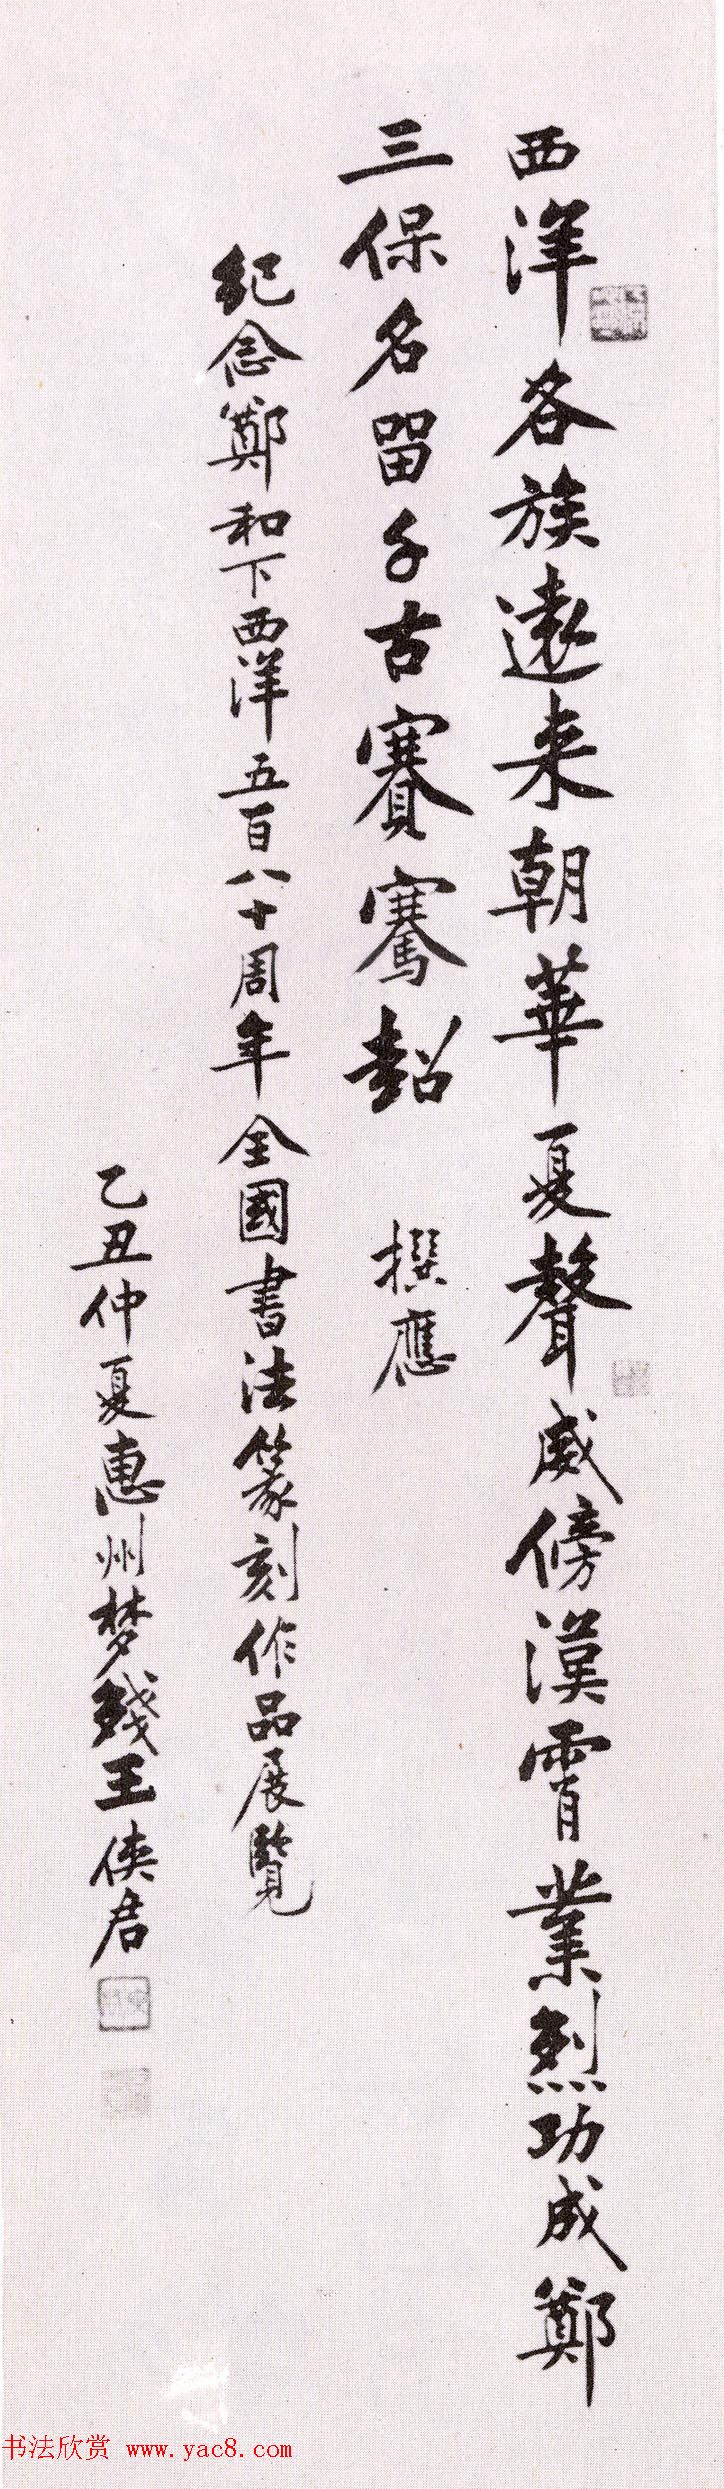 西洋各族遠来朝華夏聲威傍漢霄業烈功成鄭
三保名留千古賽騫超 撰應
紀念鄭和下西洋五百八十周年全國書法篆刻作品展覽
乙丑仲夏惠州梦殘王俠君
书法欣赏 www.yac8.com